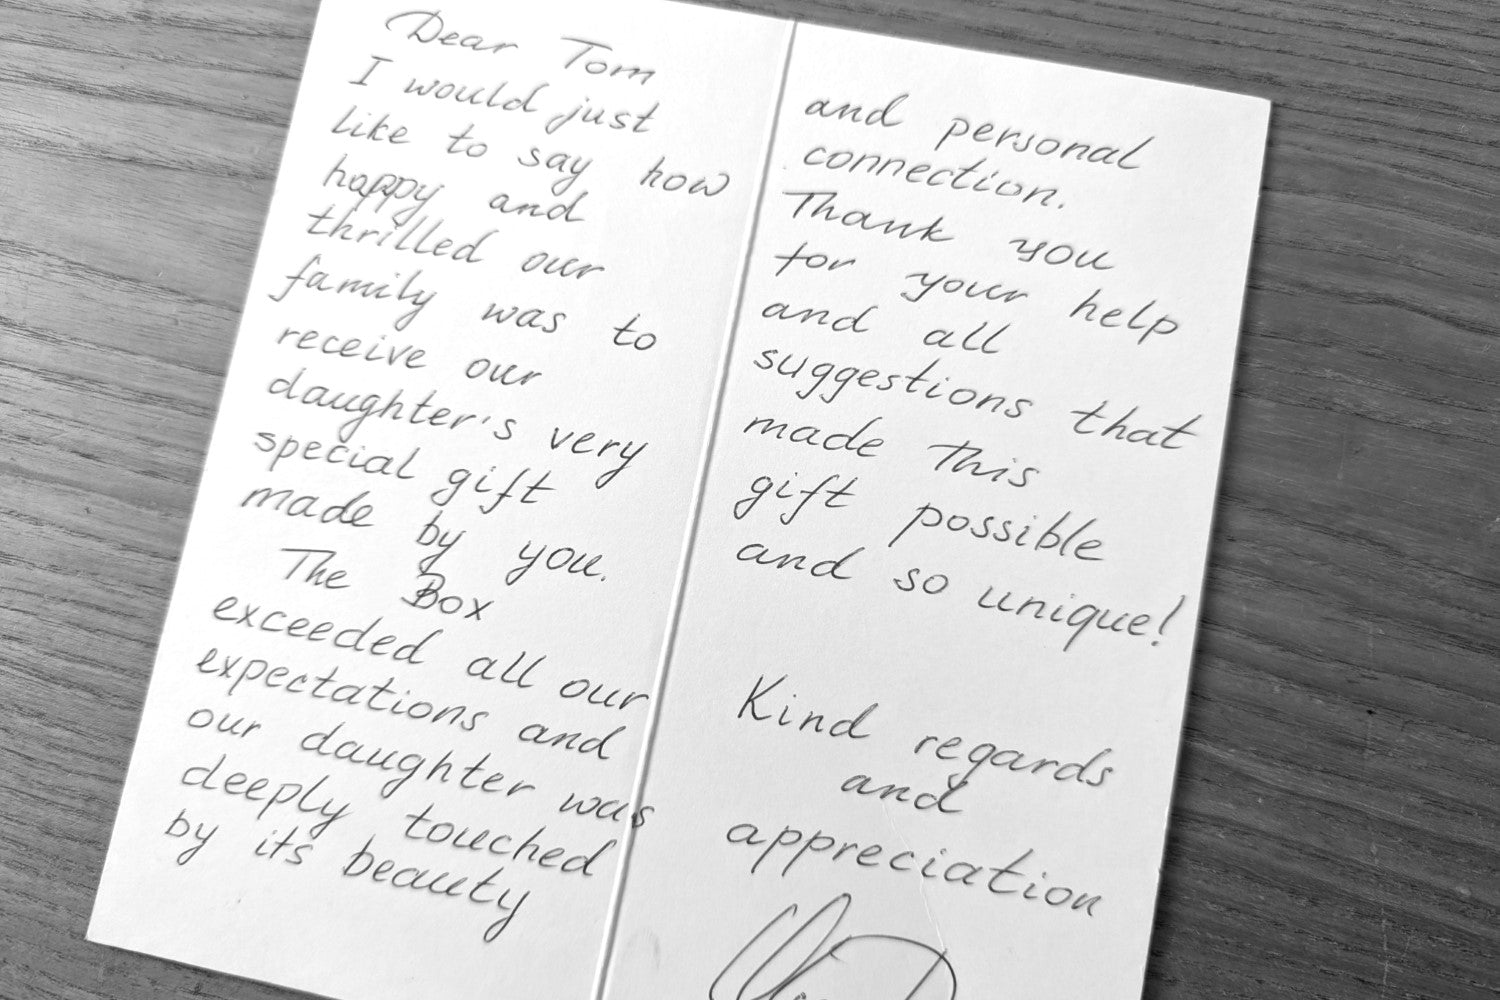 Dear Tom
I would just
like to say how
happy and
thrilled our
family was to
receive our
daughter's very
special gift
made by you.
The Box
exceeded all our
expectations and
our daughter was
deeply touched
by its beauty
and personal
connection.
Thank you
for your help
and all
suggestions that
made this
gift possible
and so unique!
Kind regards
and
appreciation